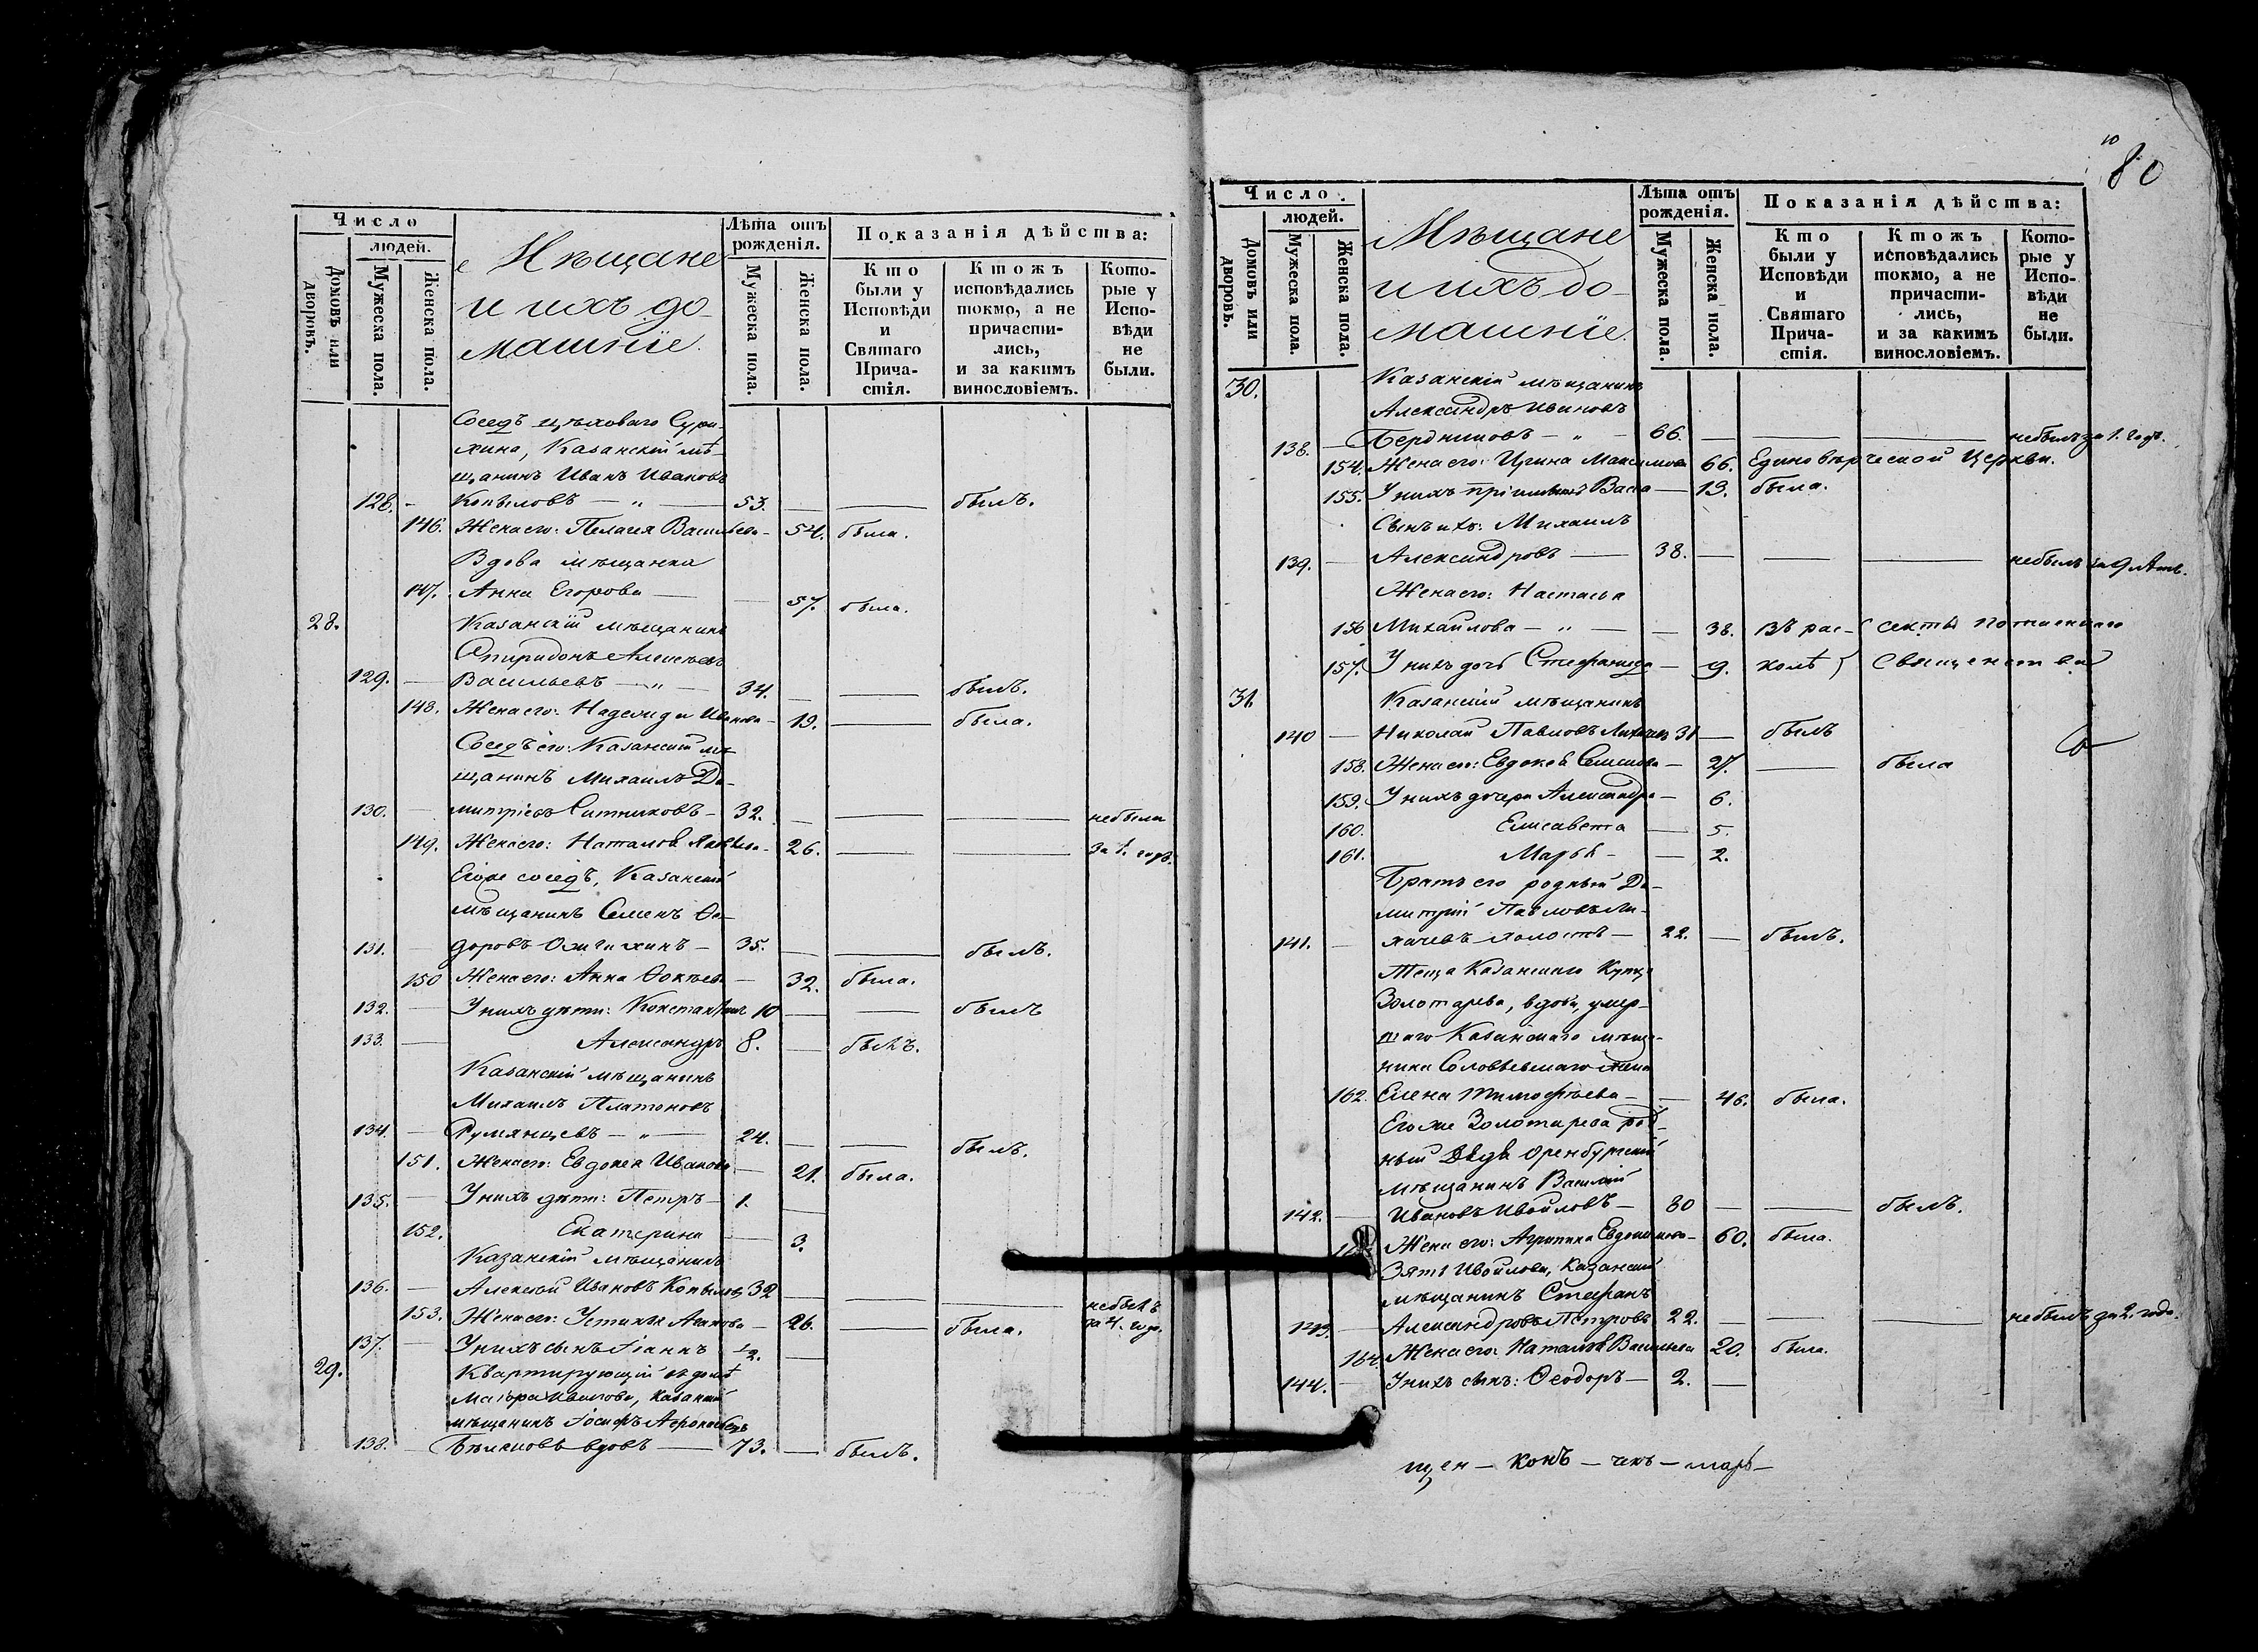 Число
людей.
Домовъ или дворовъ.
Мужеска пола.
Женска пола.
Мѣщане
и ихъ до-
машніе.
Лѣта отъ рожденія.
Мужеска пола.
Женска пола.
Показанія дѣйства:
Кто были у Исповѣди и Святаго Прича-стія.
Ктожъ исповѣдались токмо, а не причасти-лись, и за какимъ винословіемъ.
Кото-рые у Испо-вѣди не были.
Соседъ цѣховаго Сури-
хина, Казанскій мѣ-
щанинъ Иванъ Ивановъ
128. Копыловъ — „ — 53. — былъ.
146. Жена его: Пелагея Васильева — 54. была.
Вдова мѣщанка
147. Анна Егорова — 57. была.
28. Казанскій мѣщанинъ
Спиридонъ Алексѣевъ
129. Васильевъ — „ — 34. — былъ.
148. Жена его: Надежда Иванова — 19. — была.
Соседъ его: Казанскій мѣ-
щанинъ Михаилъ Ди-
130. митріевъ Ситниковъ — 32. — небыли
149. Жена его: Наталья Яковлева — 26. — за 1. годъ.
Егоже соседъ, Казанскій
мѣщанинъ Семенъ Ѳе-
131. доровъ Ожигихинъ — 35. — былъ.
150 Жена его: Анна — 32. была.
132. У нихъ дѣти: Константинъ 10 — былъ
133. Александръ 8. — былъ.
Казанскій мѣщанинъ
Михаилъ Платоновъ
134. Румянцевъ — „ — 24. — былъ.
151. Жена его: Евдокея Иванова — 21. была.
135. У нихъ дѣти: Петръ — 1.
152. Екатерина — 3.
Казанскій мѣщанинъ
136. Алексѣй Ивановъ Копыловъ 32 — небылъ за 4. года.
153. Жена его: Устинья — 26. — была.
137. У нихъ сынъ Іоаннъ ½. —
29. Квартирующій въ домѣ
Маіора, Казанскій
мѣщанинъ Іосифъ
138. Бѣляковъ вдовъ — 73. — былъ.
80
Число
людей.
Домовъ или дворовъ.
Мужеска пола.
Женска пола.
Мѣщане
и ихъ до-
машніе.
Лѣта отъ рожденія.
Мужеска пола.
Женска пола.
Показанія дѣйства:
Кто были у Исповѣди и Святаго Прича-стія.
Ктожъ исповѣдались токмо, а не причасти-лись, и за какимъ винословіемъ.
Кото-рые у Испо-вѣди не были.
30. Казанскій мѣщанинъ
Александръ Ивановъ
138. — Бердниковъ — „ — 66. — небылъ за 1. годъ.
154. Жена его: Ирина Максимова 66. Единовѣрческой Церкви.
155. У нихъ Васса — 19. была.
Сынъ ихъ: Михаилъ
139. — Александровъ — 38. — небылъ за 9 лѣтъ.
Жена его: Настасья
156 Михайлова — „ — 38. въ рас- секты
157. У нихъ дочь Стефанида — 9. колѣ священства
31 Казанскій мѣщанинъ
140 — Николай Павловъ Лихачевъ 31 — былъ
158. Жена его: Евдокея Семенова — 27. — была
159. У нихъ дочери Александра — 6.
160. Елисавета — 5.
161. Марья — 2.
Братъ его родный Ди-
митрій Павловъ Ли-
141. — хачевъ холостъ — 22. — былъ.
Теща Казанскаго Купца
Золотарева, вдова, умер-
шаго Казанскаго мѣща-
нина жена
162. Елена Тимофѣева — 46. была.
Егоже Золотарева род-
ный Дѣдъ Оренбургскій
мѣщанинъ Василій
142. — Ивановъ Ивойловъ — 80 — былъ.
Жена его: Агрипина Евдокимова — 60. была.
Зять Ивойлова, Казанскій
мѣщанинъ Стефанъ
143. — Александровъ Петровъ 22. — небылъ за 2. года.
164 Жена его: Наталья Васильева 20. была.
144. — У нихъ сынъ: Ѳеодоръ — 2. —
щен — конъ —